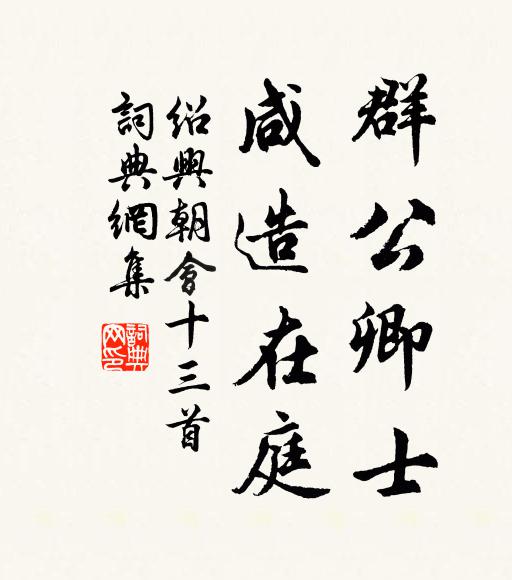 群公卿士
咸造在庭
紹興朝會十三首
詞典網集
詞典网印